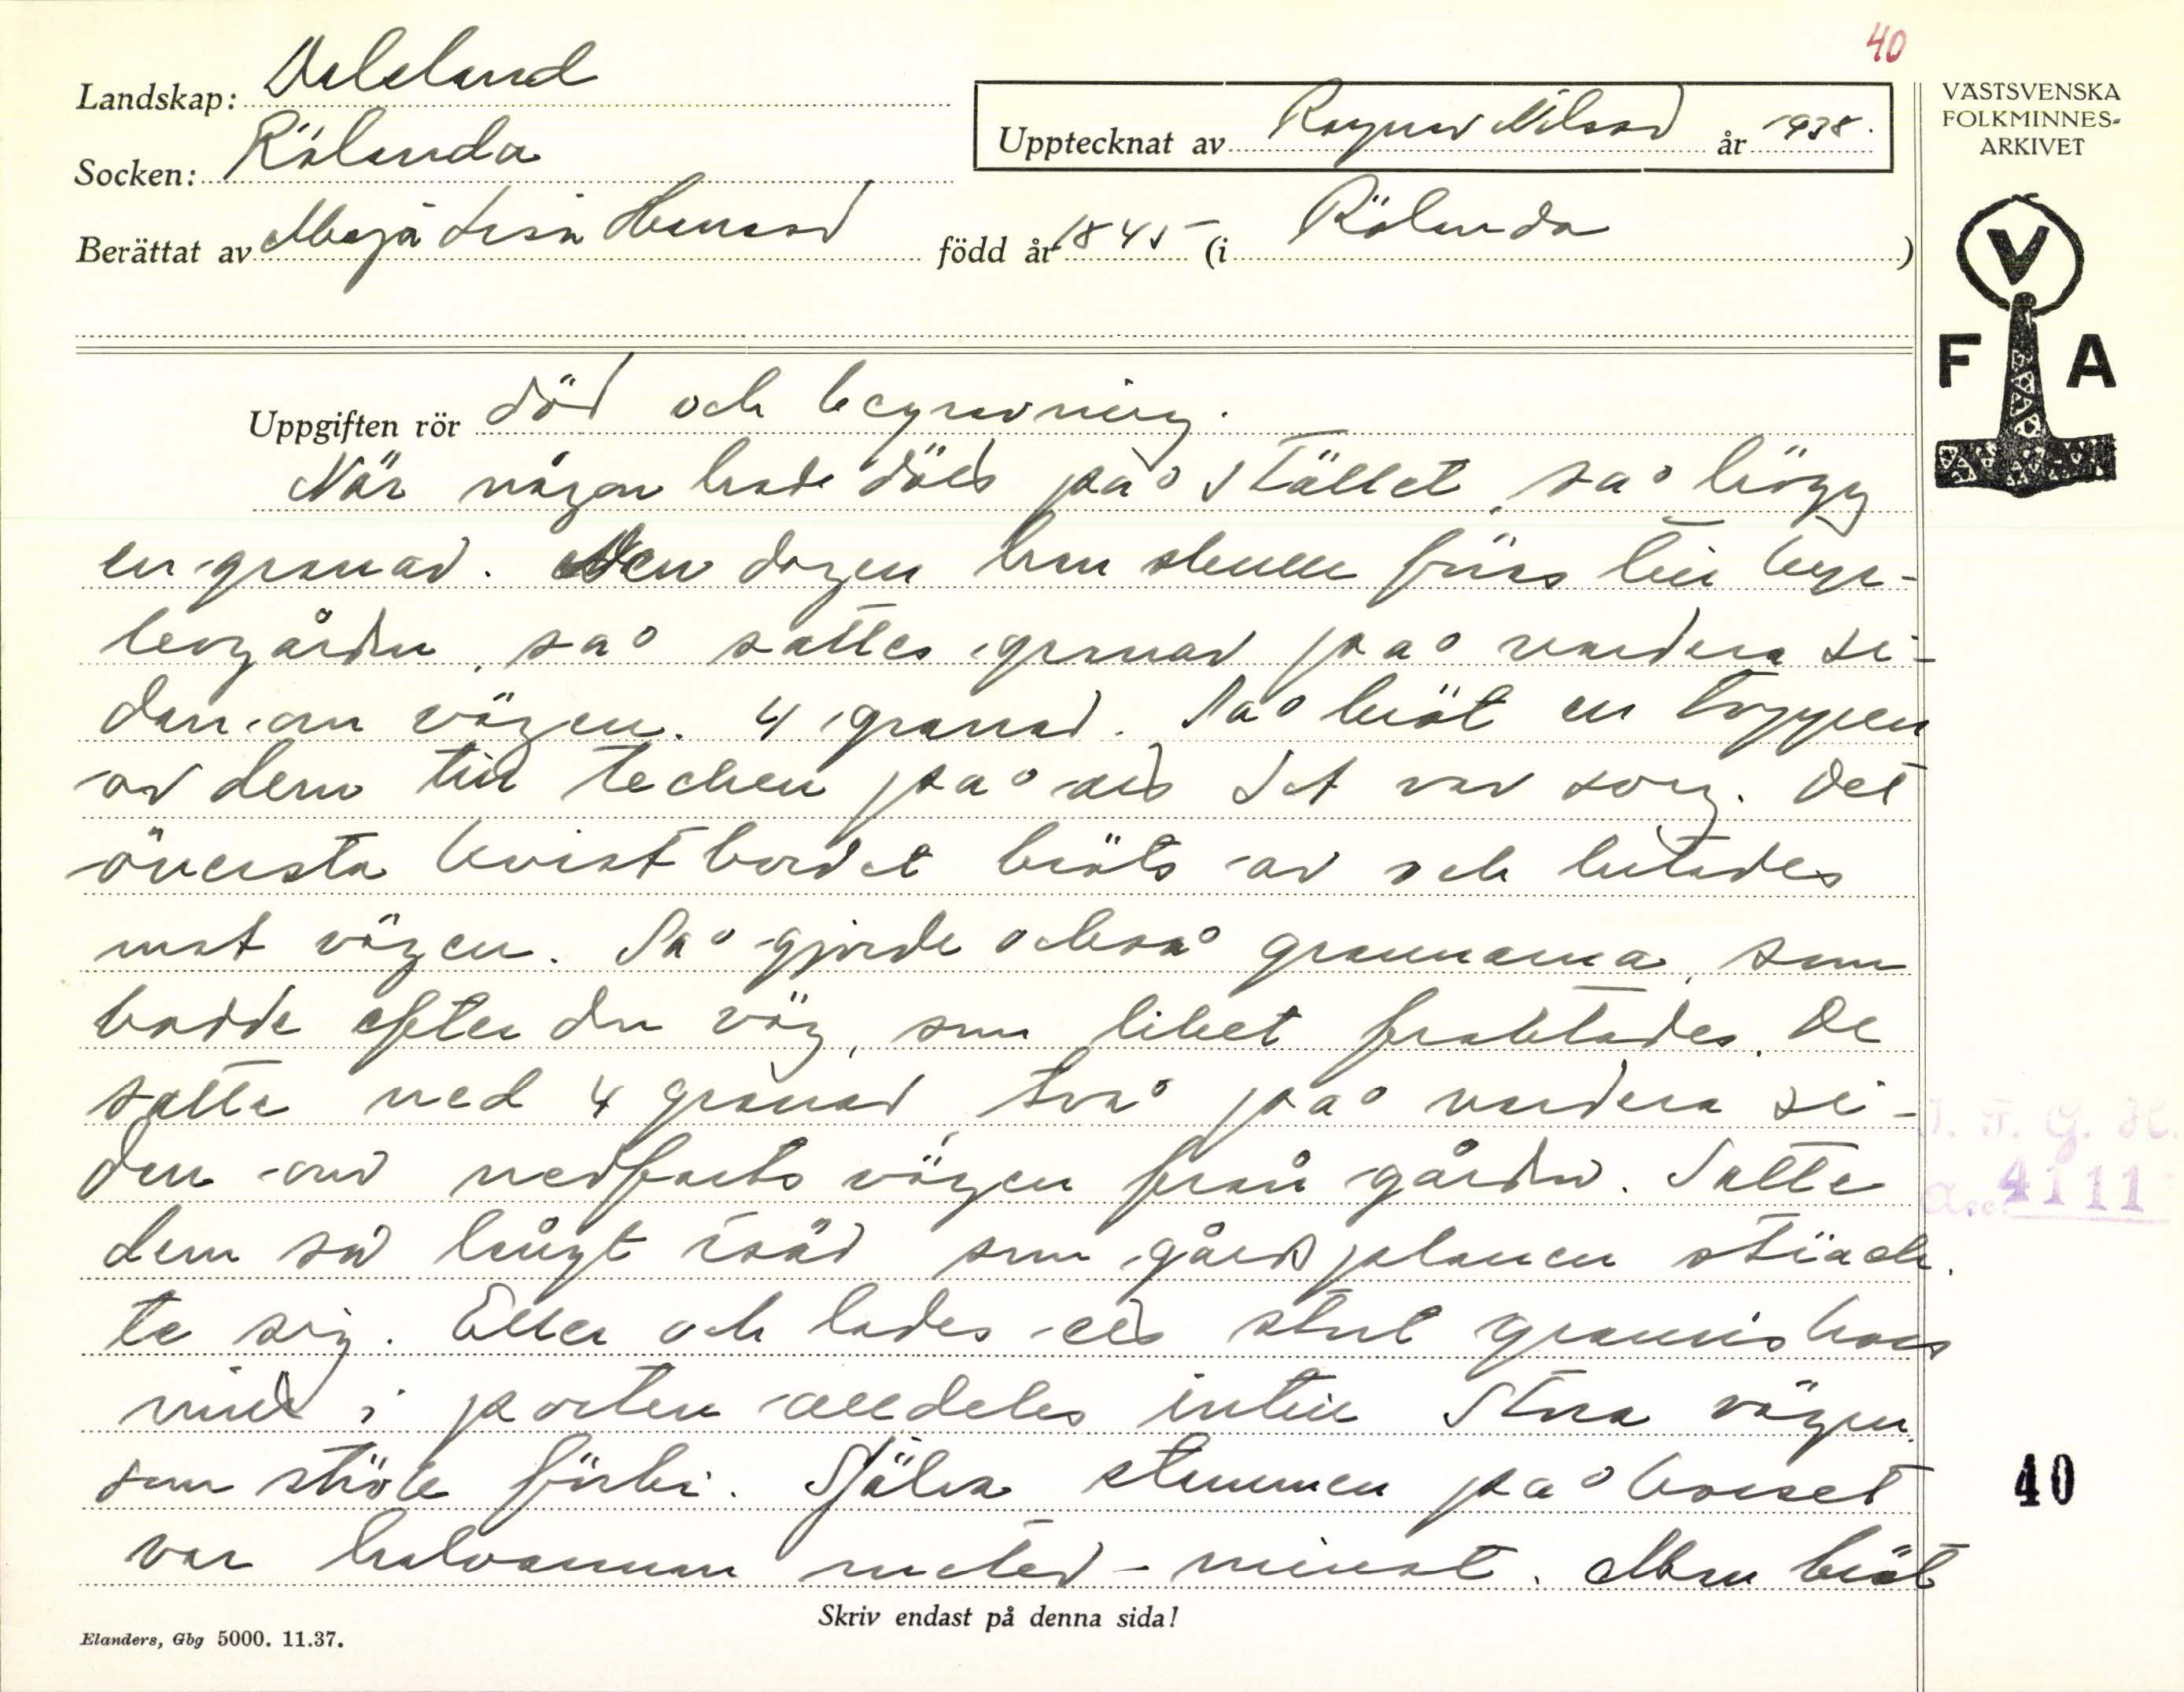 40
Landskap: Dalsland
Socken: Rölanda
Upptecknat av Ragnar Nilsson år 1938.
Berättat av Maja Lisa Hansson född år 1845 (i Rölanda)
VÄSTSVENSKA
FOLKMINNES-
ARKIVET
V
F A
Uppgiften rör död och begravning.
När någon hade dött på stället, så högg
en granar. Den dagen han skulle föras till kyr-
kogården, så sattes granar på vardera si-
dan om vägen. 4 granar. Så bröt en toppen
av dem till tecken på att det var sorg. Det
översta kvistbordet bröts av och lutades
mot vägen. Så gjorde också grannarna, som
bodde efter den väg, som liket fraktades. De
satte ned 4 granar, två på vardera si-
dan om nedfartsvägen från gården. Satte
dem så långt isär som gårdsplanen sträck-
te sig. Eller och lades ett stort granriskors
mitt i porten alldeles intill stora vägen
som strök förbi. Själva stammen på korset
var halvannan meter - minst. Man bröt
I. F. G. H.
Acc. 4111
40
Skriv endast på denna sida!
Elanders, Gbg 5000. 11.37.